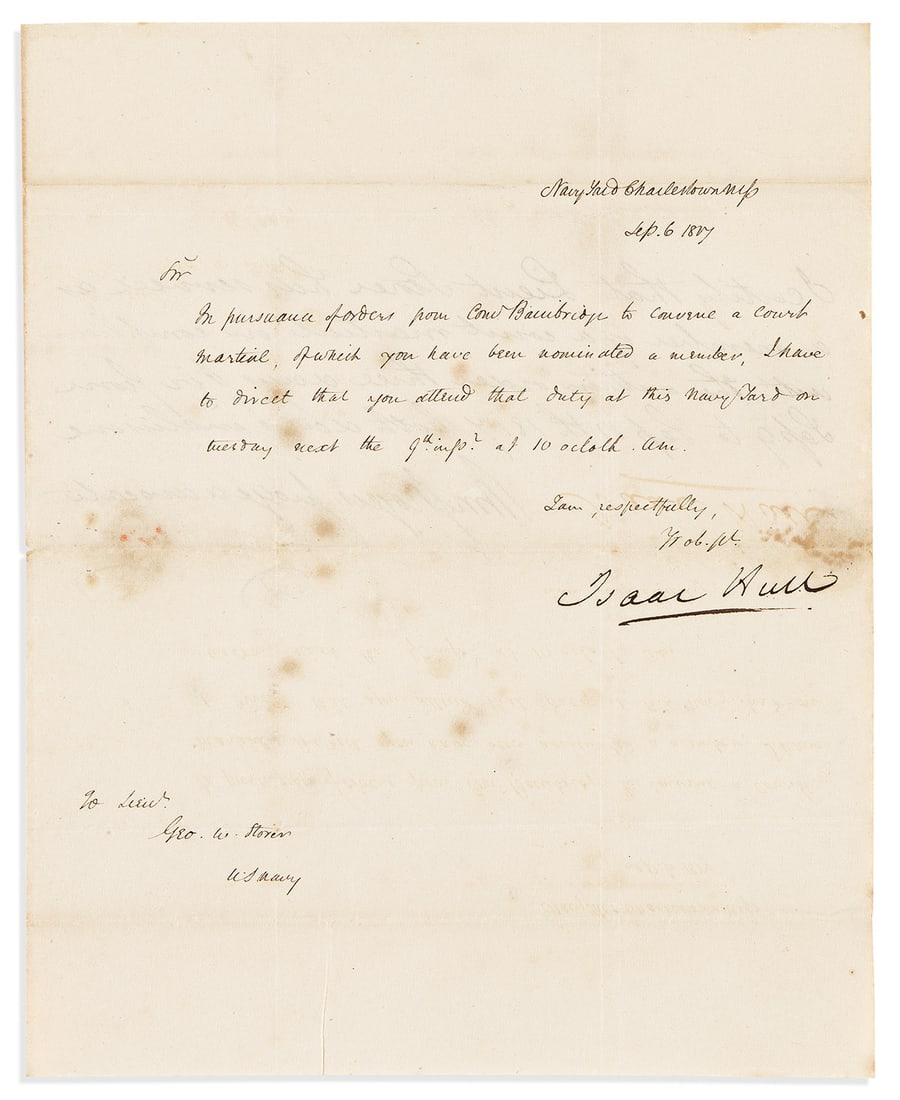 Navy Yard Charlestown Ms
Sep. 6 1817
Sir
In pursuance of orders from Comd Bainbridge to convene a court
martial, of which you have been nominated a member, I have
to direct that you attend that duty at this Navy Yard on
tuesday next the 9th. inst. at 10 oclock. Am.
I am, respectfully,
Yr ob. st.
Isaac Hull
To Lieut.
Geo. W. Storer
U S Navy